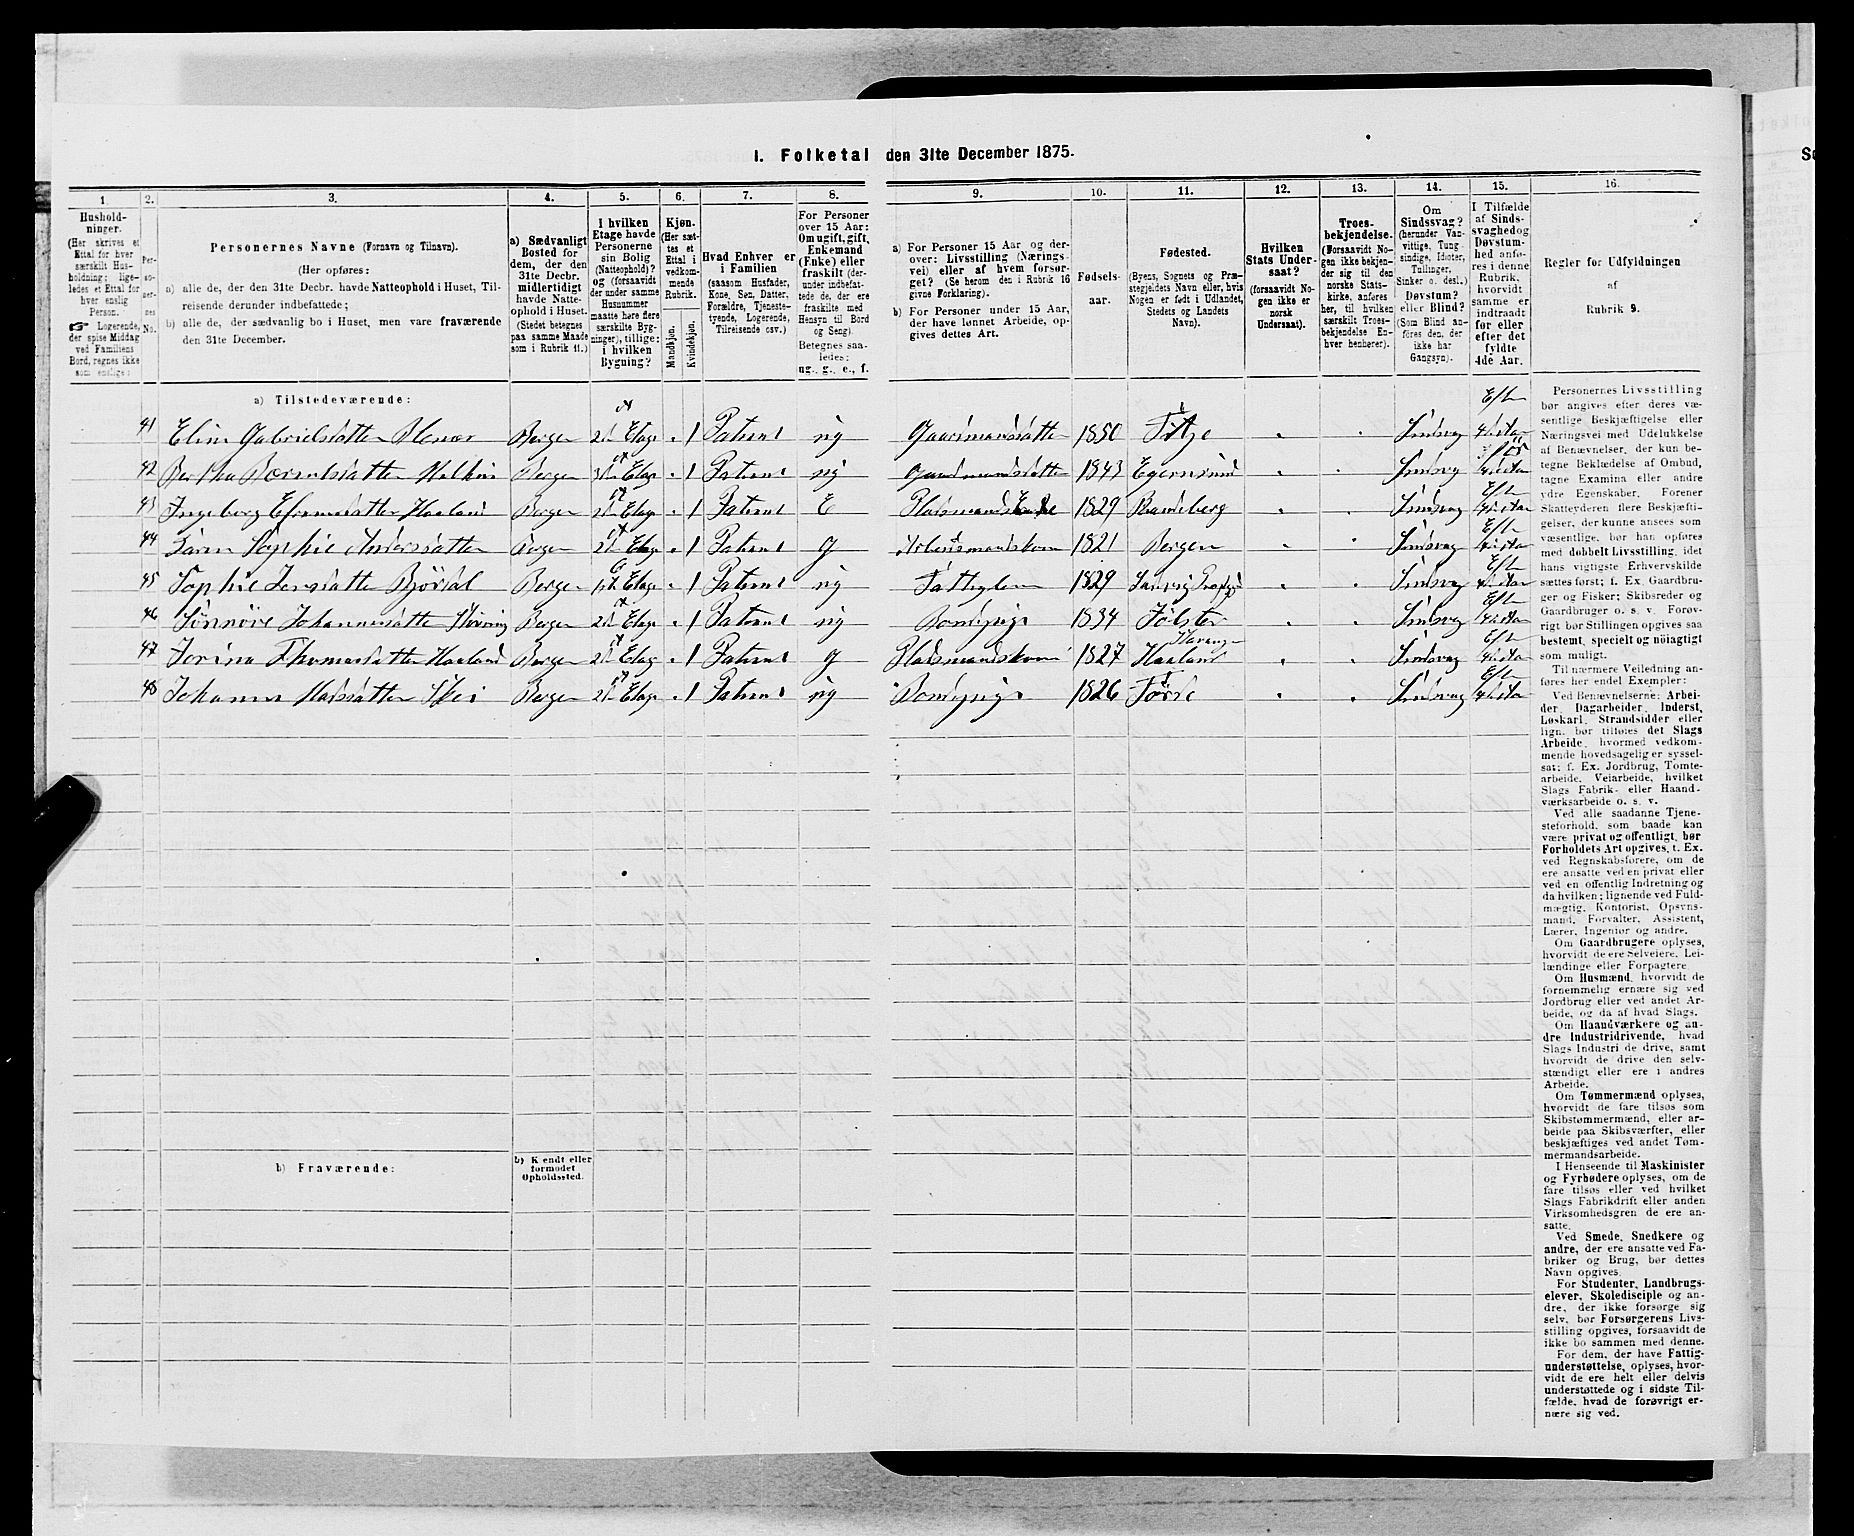 1. Folketal den 31te December 1875.
1. 2. 3. 4. 5. 6. 7. 8. 9. 10. 11. 12. 13. 14. 15. 16.
Hushold-
ninger.
(Her skrives et
Ettal for hver
særskilt Hus-
holdning; lige-
ledes et Ettal for
hver enslig
Person.
☞ Logerende,
der spise Middag
ved Familiens
Bord, regnes ikke
som enslige:
Per-
so-
ner-
nes
No.
Personernes Navne (Fornavn og Tilnavn).
(Her opføres:
a) alle de, der den 31te Decbr. havde Natteophold i Huset, Til-
reisende derunder indbefattede;
b) alle de, der sædvanlig bo i Huset, men vare fraværende
den 31te December.
a) Sædvanligt
Bosted for
dem, der den
31te Decbr.
midlertidigt
havde Natte-
ophold i Huset.
(Stedet betegnes
paa samme Maade
som i Rubrik 11.)
I hvilken
Etage havde
Personerne
sin Bolig
(Natteophold)?
og (forsaavidt
der under samme
Husnummer
maatte høre flere
særskilte Byg-
ninger), tillige:
i hvilken
Bygning?
Kjøn.
(Her sæt-
tes et
Ettal i
vedkom-
mende
Rubrik.
Mandkjøn.
Kvindekjøn.
Hvad Enhver er
i Familien
(saasom Husfader,
Kone, Søn, Datter,
Forældre, Tjeneste-
tyende, Logerende,
Tilreisende osv.)
For Personer
over 15 Aar:
Om ugift, gift,
Enkemand
(Enke) eller
fraskilt (der-
under indbefat-
tede de, der ere
fraskilte med
Hensyn til Bord
og Seng).
Betegnes saa-
ledes:
ug., g., e., f.
a) For Personer 15 Aar og der-
over: Livsstilling (Nærings-
vei) eller af hvem forsør-
get? (Se herom den i Rubrik 16
givne Forklaring).
b) For Personer under 15 Aar,
der have lønnet Arbeide, op-
gives dettes Art.
Fødsels-
aar.
Fødested.
(Byens, Sognets og Præ-
stegjeldets Navn eller, hvis
Nogen er født i Udlandet,
Stedets og Landets
Navn).
Hvilken
Stats Under-
saat?
(forsaavidt No-
gen ikke er
norsk
Undersaat).
Troes-
bekjendelse.
(Forsaavidt No-
gen ikke bekjen-
der sig til den
norske Stats-
kirke, anføres
her, til hvilken
særskilt Troes-
bekjendelse En-
hver henhører).
Om
Sindssvag?
(herunder Van-
vittige, Tung-
sindige, Idioter,
Tullinger,
Sinker o. desl.)
Døvstum?
eller Blind?
(Som Blind an-
føres den, der
ikke har
Gangsyn).
I Tilfælde
af Sinds-
svaghed og
Døvstum-
hed anfø-
res i denne
Rubrik,
hvorvidt
samme er
indtraadt
før eller
efter det
fyldte
4de Aar.
Regler for Udfyldningen
af
Rubrik 9.
a) Tilstedeværende:
41 Elin Gabrielsdatter Bergen 2den Etage 1 Patient ug Gaardmandsdatter 1850 Sindsvag Eft 4de Aar
42 Bertha Berentsdatter Bergen Etage 1 Patient ug Gaardmandsdatter 1843 Egersund Sindsvag 4de Aar
43 Ingeborg Haaland Bergen 2den Etage 1 Patient E Pladsmands Enke 1829 Randeberg Sindsvag Eft 4de Aar
44 Sophie Andersdatter Bergen 2den Etage 1 Patient g Arbeidsmandskone 1821 Bergen Sindsvag Eft 4de Aar
45 Sophie Jensdatter Bjørdal Bergen Etage 1 Patient ug Fattiglem 1829 Sindsvag Eft 4de Aar
46 Johannesdatter Bergen 2den Etage 1 Patient ug Bondepige 1834 Jølster Sindsvag Eft 4de Aar
47 Jorina Thomasdatter Haaland Bergen 2den Etage 1 Patient g Pladsmandskone 1827 Haaland Sindsvag Eft 4de Aar
48 Johanna Madsdatter Skei Bergen 2den Etage 1 Patient ug Bondepige 1826 Førde Sindsvag Eft 4de Aar
b) Fraværende:
b) Kendt eller
formodet
Opholdssted.
Personernes Livsstilling
bør angives efter deres væ-
sentlige Beskjæftigelse eller
Næringsvei med Udelukkelse
af Benævnelser, der kun be-
tegne Beklædelse af Ombud,
tagne Examina eller andre
ydre Egenskaber. Forener
Skatteyderen flere Beskjæfti-
gelser, der kunne ansees som
væsentlige, bør han opføres
med dobbelt Livsstilling, idet
hans vigtigste Erhvervskilde
sættes først; f. Ex. Gaardbru-
ger og Fisker; Skibsreder og
Gaardbruger o. s. v. Forøv-
rigt bør Stillingen opgives saa
bestemt, specielt og nöiagtigt
som muligt.
Til nærmere Veiledning an-
føres her endel Exempler:
Ved Benævnelserne: Arbei-
der, Dagarbeider, Inderst,
Løskarl, Strandsidder eller
lign. bør tilføres det Slags
Arbeide, hvormed vedkom-
mende hovedsagelig er syssel-
sat; f. Ex. Jordbrug, Tomte-
arbeide, Veiarbeide, hvilket
Slags Fabrik- eller Haand-
værksarbeide o. s. v.
Ved alle saadanne Tjene-
steforhold, som baade kan
være privat og offentligt, bør
Forholdets Art opgives, t. Ex.
ved Regnskabsførere, om de
ere ansatte ved en privat eller
ved en offentlig Indretning og
da hvilken; lignende ved Fuld-
mægtig, Kontorist, Opsyns-
mand, Forvalter, Assistent,
Lærer, Ingeniør og andre.
Om Gaardbrugere oplyses,
hvorvidt de ere Selveiere, Lei-
lændinge eller Forpagtere.
Om Husmænd, hvorvidt de
fornemmelig ernære sig ved
Jordbrug eller ved andet Ar-
beide, og da af hvad Slags.
Om Haandværkere og an-
dre Industridrivende, hvad
Slags Industri de drive, samt
hvorvidt de drive den selv-
stændigt eller ere i andres
Arbeide.
Om Tømmermænd oplyses,
hvorvidt de fare tilsøs som
Skibstømmermænd, eller ar-
beide paa Skibsværfter, eller
beskjæftiges ved andet Tøm-
mermandsarbeide.
I Henseende til Maskinister
og Fyrbødere oplyses, om de
fare tilsøs eller ved hvilket
Slags Fabrikdrift eller anden
Virksomhedsgren de ere an-
satte.
Ved Smede, Snedkere og
andre, der ere ansatte ved Fa-
briker og Brug, bør dettes
Navn opgives.
For Studenter, Landbrugs-
elever, Skoledisciple og an-
dre, der ikke forsørge sig
selv, bør Forsørgerens Livs-
stilling opgives, forsaavidt de
ikke bo sammen med denne.
For dem, der have Fattig-
understøttelse, oplyses, hvor-
vidt de ere helt eller delvis
understøttede og i sidste Til-
fælde, hvad de forøvrigt er-
nære sig ved.